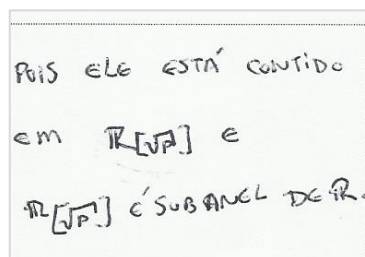 POIS ELE ESTÁ CONTIDO
EM ℝ[√p] E
ℝ[√p] É SUBANEL DE ℝ.